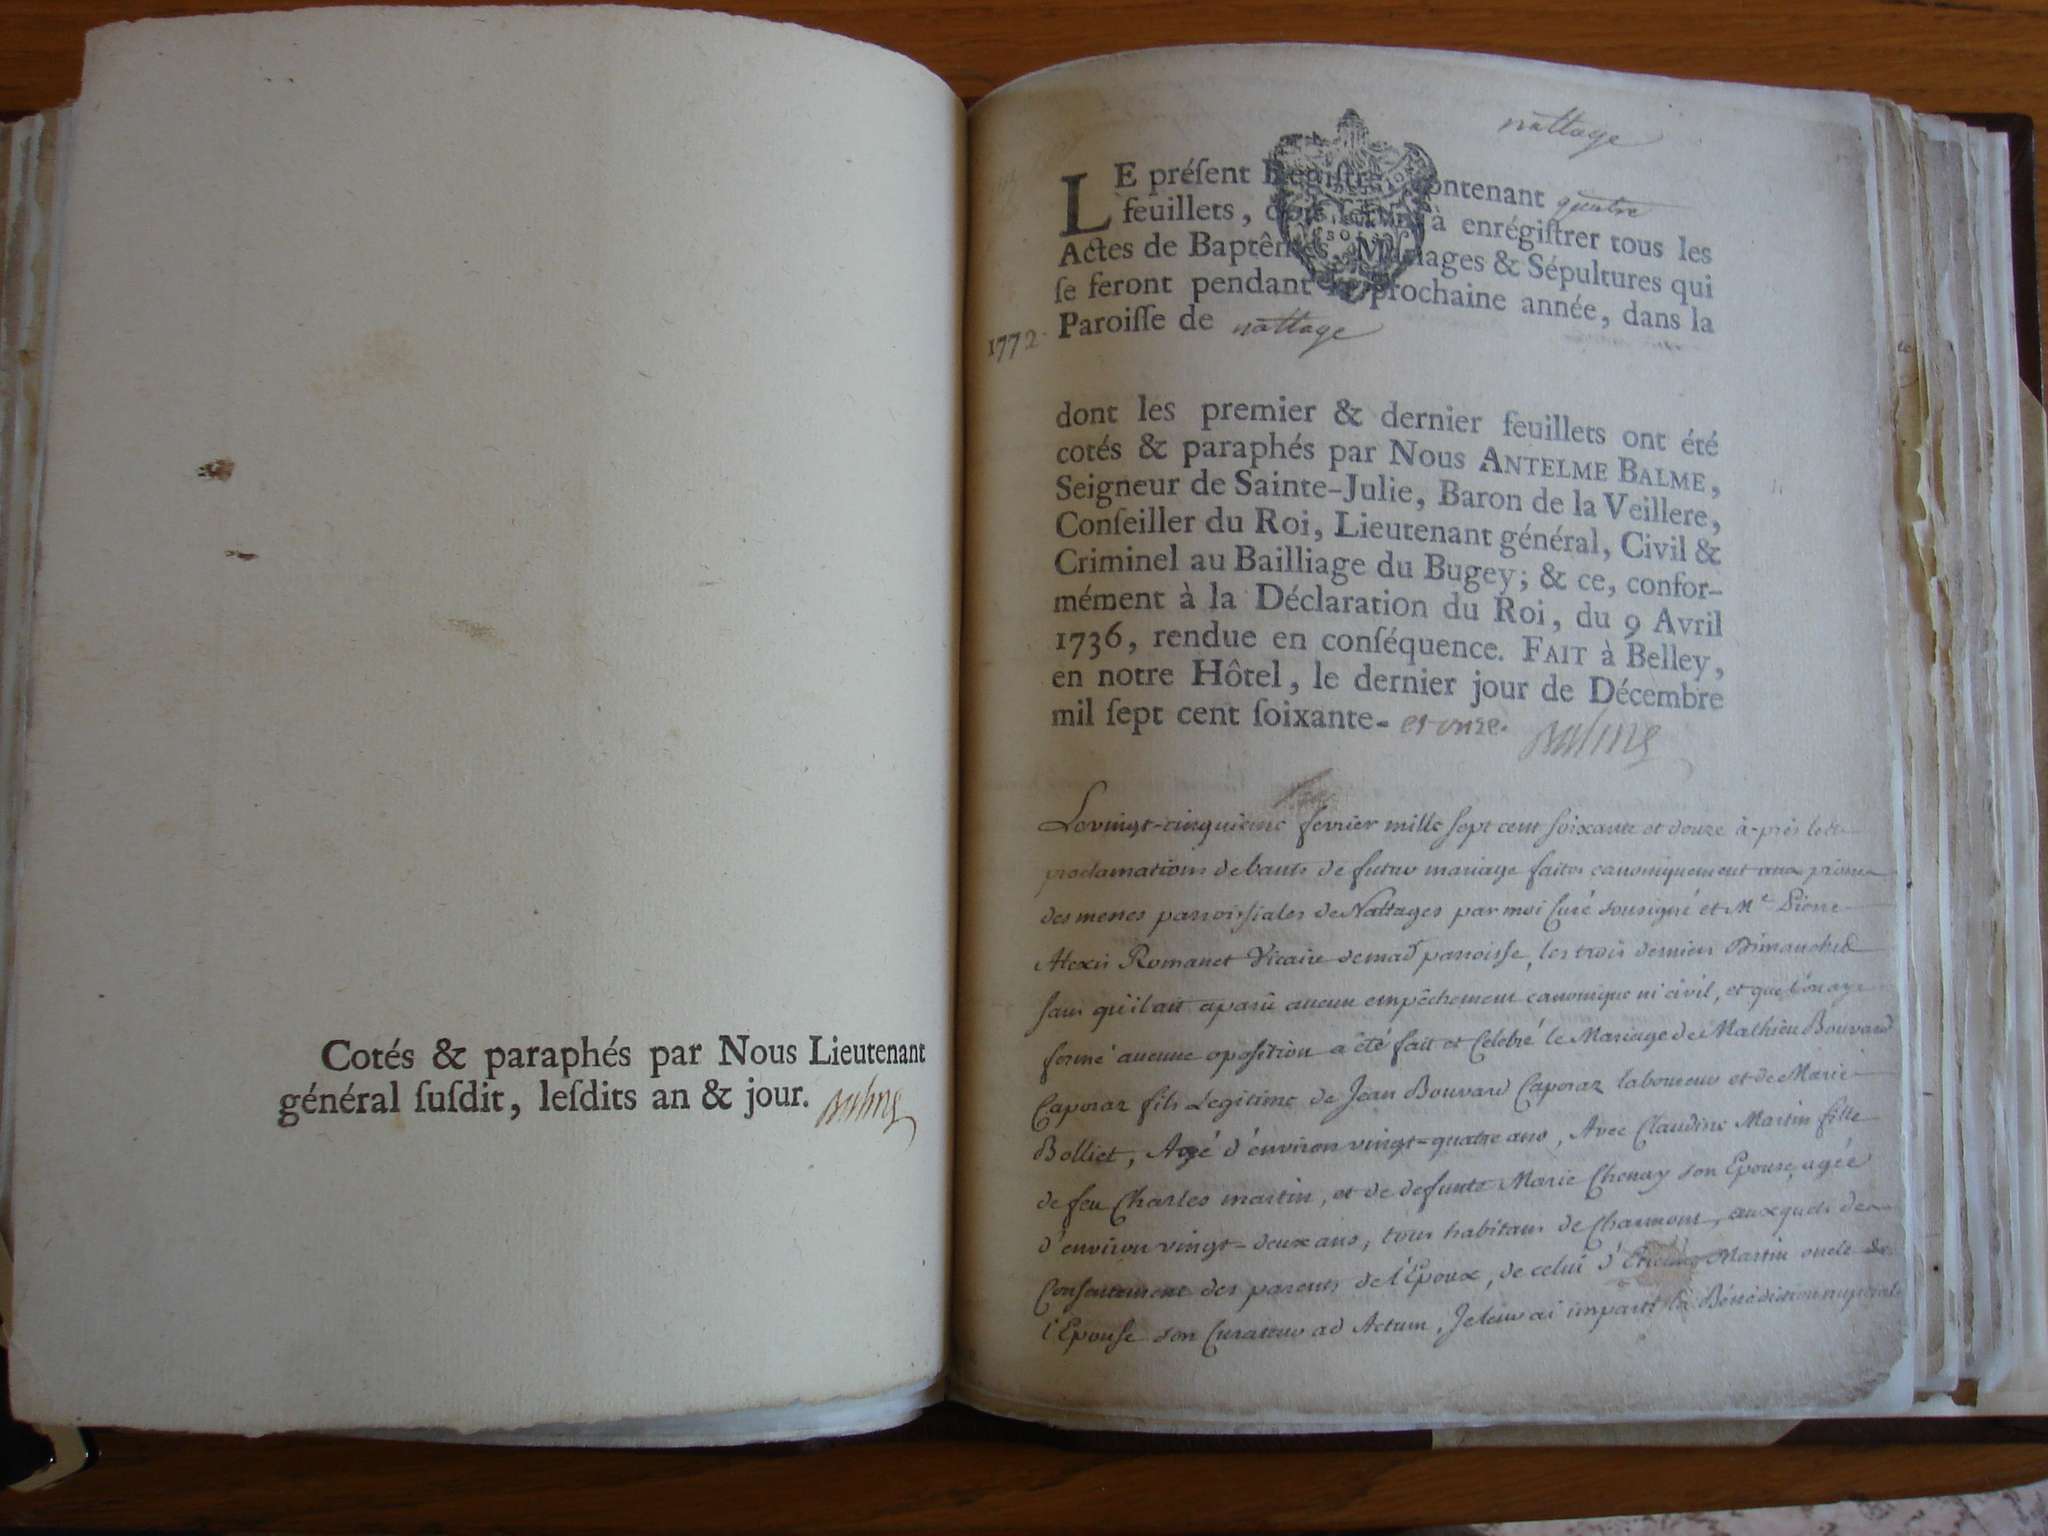 Cotés & paraphés par Nous Lieutenant
général ſuſdit, leſdits an & jour. Balme
nattage
LE préſent Regiſtre, contenant quatre
feuillets, doit ſervir à enrégiſtrer tous les
Actes de Baptêmes, Mariages & Sépultures qui
ſe feront pendant la prochaine année, dans la
1772. Paroiſſe de nattage
dont les premier & dernier feuillets ont été
cotés & paraphés par Nous ANTELME BALME,
Seigneur de Sainte-Julie, Baron de la Veillere,
Conſeiller du Roi, Lieutenant général, Civil &
Criminel au Bailliage du Bugey; & ce, confor-
mément à la Déclaration du Roi, du 9 Avril
1736, rendue en conſéquence. FAIT à Belley,
en notre Hôtel, le dernier jour de Décembre
mil ſept cent ſoixante- et onze. Balme
Le vingt-cinquieme fevrier mille sept cent soixante et douze après
proclamations de bants de futur mariage faites canoniquement aux
des messes parroissiales de Nattages par moi Curé sousigné et Mre Pierre
Alexis Romanet Vicaire de mad parroisse, les trois derniers Dimanches
sans qu'il ait aparû aucun empêchement canonique ni civil, et que l'on aye
formé aucune oposition a été fait et Célébré le Mariage de Mathieu Bouvard
Caporaz fils Legitime de Jean Bouvard Caporaz laboureur et de Marie
Bolliet, Agé d'environ vingt-quatre ans, Avec Claudine Martin fille
de feu Charles martin, et de defunte Marie Chenay son Epouse, agée
d'environ vingt-deux ans, tous habitans de Charmont, auxquels de
Consentement des parents de l'Epoux, de celui d'Etienne Martin oncle de
l'Epouse son Curateur ad Actum, Je leur ai imparti la Bénédiction nuptiale